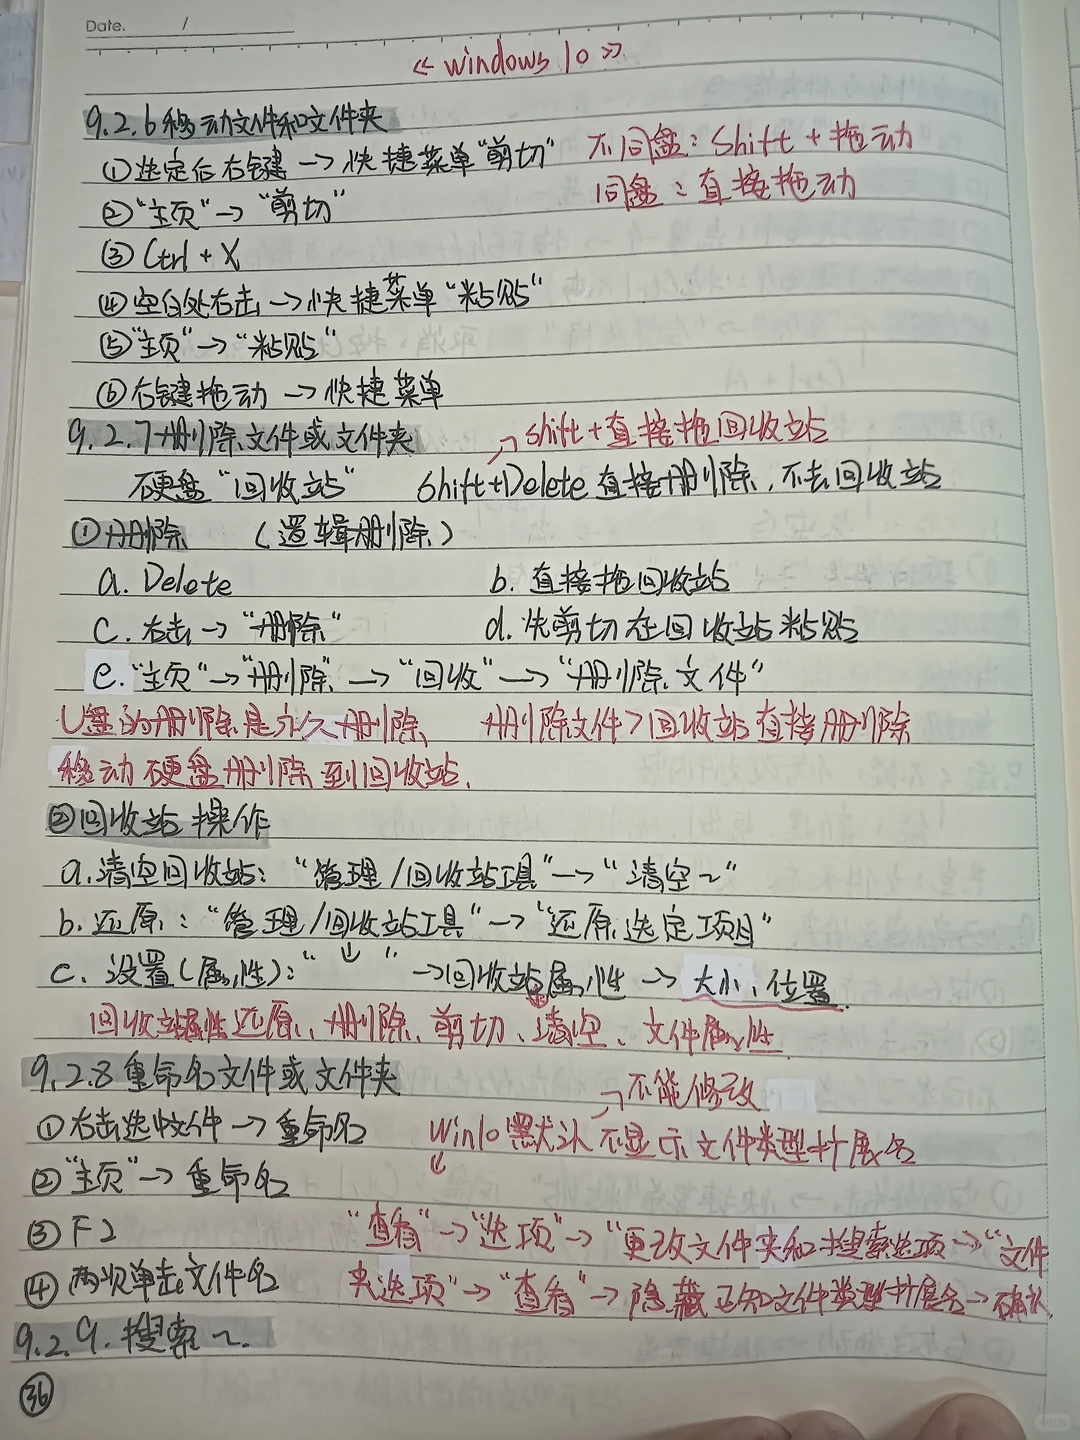 Date. /
《 windows 10 》
9.2.6 移动文件和文件夹
①选定后右键→快捷菜单“剪切” 不同盘：Shift + 拖动
②“主页”→“剪切” 同盘：直接拖动
③Ctrl + X
④空白处右击→快捷菜单“粘贴”
⑤“主页”→“粘贴”
⑥右键拖动→快捷菜单
9.2.7 删除文件或文件夹 → shift+直接拖回收站
硬盘“回收站” Shift+Delete 直接删除，不去回收站
①删除 （逻辑删除）
a. Delete b. 直接拖回收站
c. 右击→“删除” d. 先剪切在回收站粘贴
e. “主页”→“删除”→“回收”→“删除文件”
U盘的删除是永久删除 删除文件>回收站直接删除
移动硬盘删除到回收站.
②回收站操作
a. 清空回收站：“管理/回收站工具”→“清空~”
b. 还原：“管理/回收站工具”→“还原选定项目”
c. 设置(属性)：“ ↓ ”→回收站属性→大小、位置.
回收站属性还原、删除、剪切、清空、文件属性
9.2.8 重命名文件或文件夹 → 不能修改
①右击选中文件→重命名 Win10默认不显示文件类型扩展名
②“主页”→重命名 ↓
③F2 “查看”→“选项”→“更改文件夹和搜索选项→“文件
④两次单击文件名 夹选项”→“查看”→隐藏已知文件类型扩展名→确认
9.2.9. 搜索~.
㊱